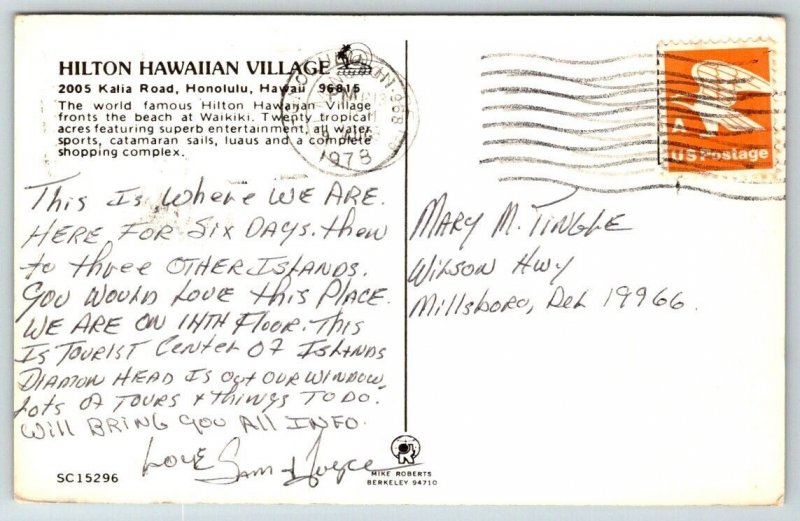 HILTON HAWAIIAN VILLAGE
2005 Kalia Road, Honolulu, Hawaii 96815
The world famous Hilton Hawaiian Village
fronts the beach at Waikiki. Twenty tropical
acres featuring superb entertainment, all water
sports, catamaran sails, luaus and a complete
shopping complex.
1978
A
US Postage
This Is Where WE ARE.
HERE FOR Six DAYS. then
to three OTHER ISLANDS.
You WOULD Love this PLACE.
WE ARE ON 14TH FLOOR. This
Is TOURIST Center OF ISLANDS
DIAMON HEAD IS Out OUR WINDOW.
Lots OF TOURS + things TO DO.
Will BRING you All INFO.
Love Sam & Joyce
MARY M. TINGLE
WILSON HWY
Millsboro, Del 19966.
MIKE ROBERTS
BERKELEY 94710
SC15296